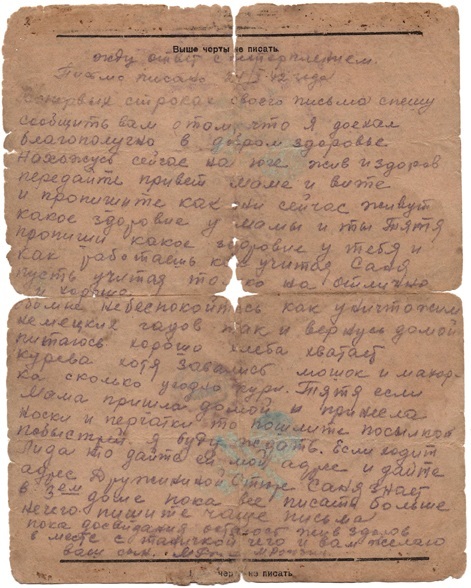 Выше черты не писать
жду ответ с нетерпением.
Письмо писано 42 года
Впервых строках своего письма спешу
сообщить вам о том, что я доехал
благополучно в добром здоровье
Нахожусь сейчас на юге жив издоров
передайте привет маме и вите
и пропишите как они сейчас живут
какое здоровие у мамы и ты Тятя
пропиши какое здоровие у тебя и
как работаешь как учитая Саня
пусть учитая только на отлично
и хорошо.
обомне небеспокойтесь как уничтожим
немецких гадов так и вернусь домой
питаюсь хорошо хлеба хватает
курева хотя завались мошок и махор-
ка сколько угодно кури. Тятя если
мама пришла домой и принесла
носки и перчатки то пошлите посылкой
побыстрей я буду ждать. Если ходит
Лида то дайте ей мой адрес и дайте
адрес Дружининой Саня знает
в 3ем доме пока все писать больше
нечего пишите чаще письма
пока досвидания остаюсь жив здоров
в месте с таничкой чего и вам желаю
ваш сын.
черты не писать